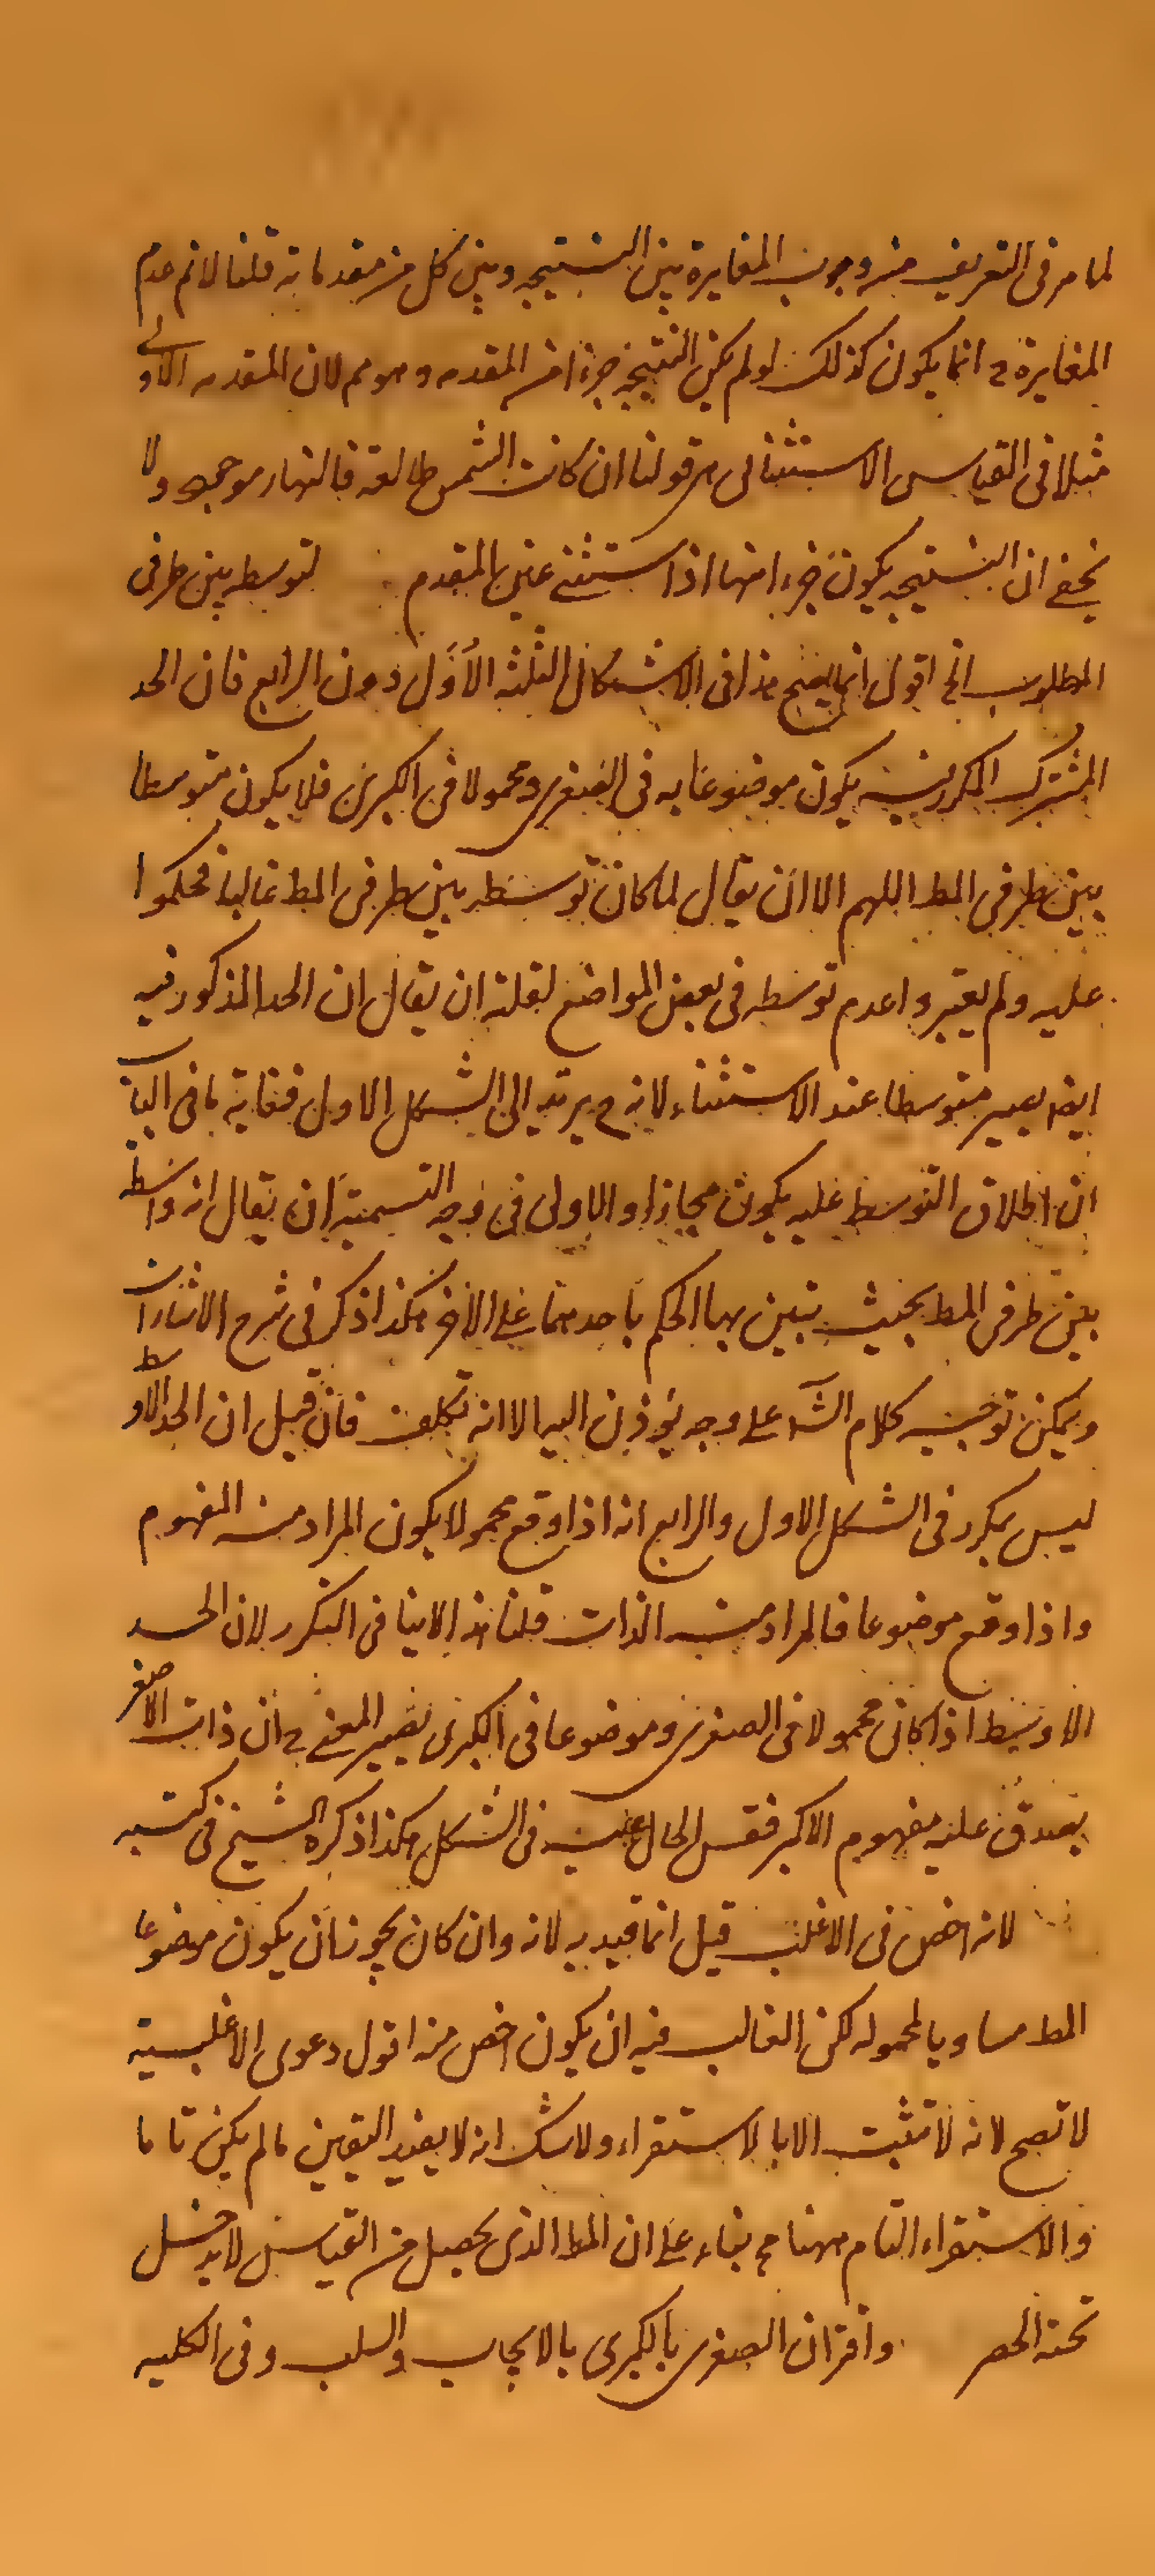 لما مر فى التعريف من وجوب المغايرة بين النتيجه وبين كل من مقدماته قلنا لانم عدم
المغايرة ح انما يكون كذلك لو لم يكن النتيجه جزءا من المقدمه وهو مم لان المقدمه الاولى
مثلا فى القياس الاستثنائى هى قولنا ان كانت الشمس طالعة فالنهار موجود ولا
يخفى ان النتيجه يكون جزءا منها اذا استثنى عين المقدم لتوسطه بين طرفى
المطلوب الخ اقول انما يصح هذا فى الاشكال الثلثه الاول دون الرابع فان الحد
المشترك المكرر فيه يكون موضوعا به فى الصغرى ومحمولا فى الكبرى فلا يكون متوسطا
بين طرفى المط اللهم الا ان يقال لما كان توسطه بين طرفى المط غالبا فحكموا
عليه ولم يعتبروا عدم توسطه فى بعض المواضع لقلته ان يقال ان الحد المذكور فيه
ايضا يصير متوسطا عند الاستثناء لانه ح يرتد الى الشكل الاول فغاية ما فى الباب
ان اطلاق التوسط عليه يكون مجازا والاولى فى وجه التسمية ان يقال انه واسطة
بين طرفى المط بحيث تبين بها الحكم باحدهما على الاخر هكذا ذكر فى شرح الاشارات
ويمكن توجيه كلام الشا على وجه يؤذن اليه الا انه تكلف فان قيل ان الحد الاوسط
ليس بمكرر فى الشكل الاول والرابع انه اذا وقع محمولا يكون المراد منه المفهوم
واذا وقع موضوعا فالمراد منه الذات قلنا هذا لا ينافى التكرر لان الحد
الاوسط اذا كان محمولا فى الصغرى وموضوعا فى الكبرى يصير المعنى ح ان ذات الاصغر
يصدق عليه مفهوم الاكبر فقس الحال عليه فى الشكل هكذا ذكره الشيخ فى كتبه
لانه اخص فى الاغلب قيل انما قيد به لانه وان كان يجوز ان يكون موضوعا
المط مساويا لمحموله لكن الغالب فيه ان يكون اخص منه اقول دعوى الاغلبية
لا تصح لانه لا تثبت الا بالاستقراء ولا شك انه لا يفيد اليقين ما لم يكن تاما
والاستقراء التام ههنا مح بناء على ان المط الذى يحصل من القياس لا يدخل
تحت الحصر واقتران الصغرى بالكبرى بالايجاب والسلب وفى الكليه